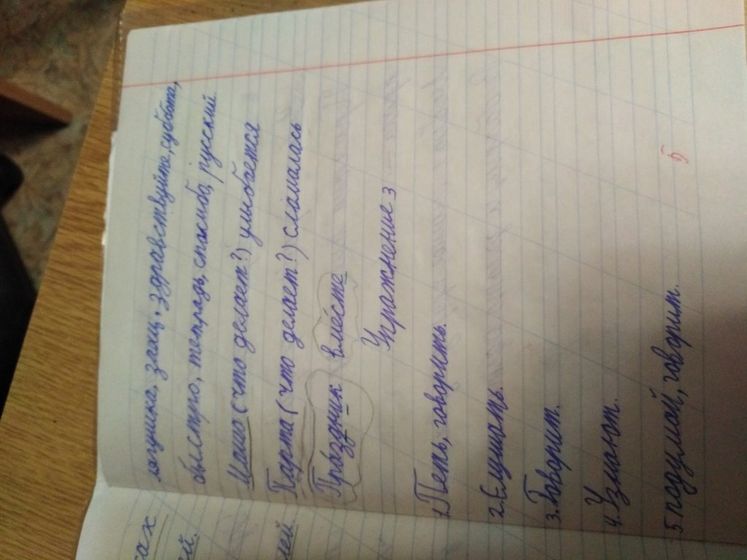 лягушка, заяц, здравствуйте, суббота,
быстро, тетрадь, спасибо, русский
Маша (что делает?) улыбается
Парта (что делает?) сломалась
Праздник вместе
Упражнение 3
1. Петь, говорить.
2. Слушать.
3. Говорит.
4. Узнают.
5 подумай, говорит.
5